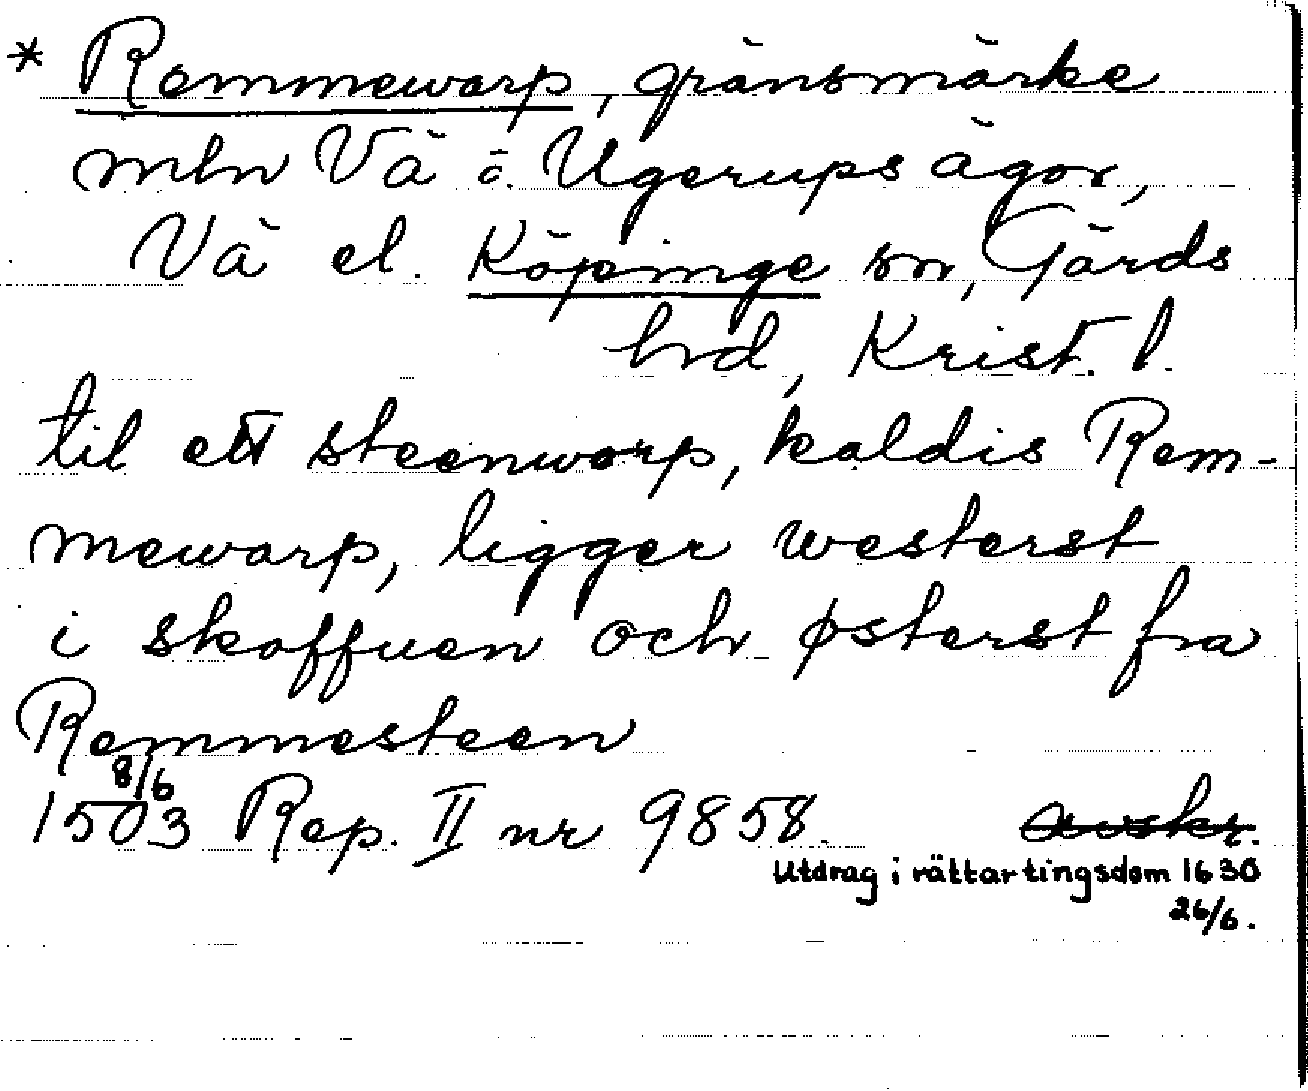 * Remmewarp, gränsmärke
mln Vä o. Ugerups ägor,
Vä el. Köpinge sn, Gärds
hd, Krist. l.
til ett steenworp, kaldis Rem-
mewarp, ligger westerst
i skoffuen och østerst fra
Remmesteen
1503 8/6 Rep. II nr 9858. avskr.
Utdrag i rättartingsdom 1630
26/6.